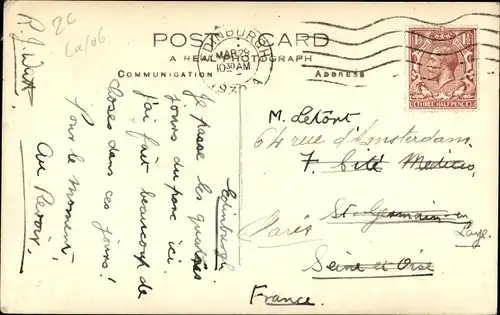 POST CARD
A REAL PHOTOGRAPH
COMMUNICATION
ADDRESS
EDINBURGH
MAR 29
10 30 AM
1930
THREE HALFPENCE
26
Edinburgh
Je passe les quatres
jours du parc ici.
j'ai fait beaucoup de
choses dans ces jours!
Pour le moment,
au Revoir,
R. J. Watt
M. Letort
64 rue d'Amsterdam.
7. Cité Médicis,
St-Germain-en
Laye.
Paris
Seine et Oise
France.